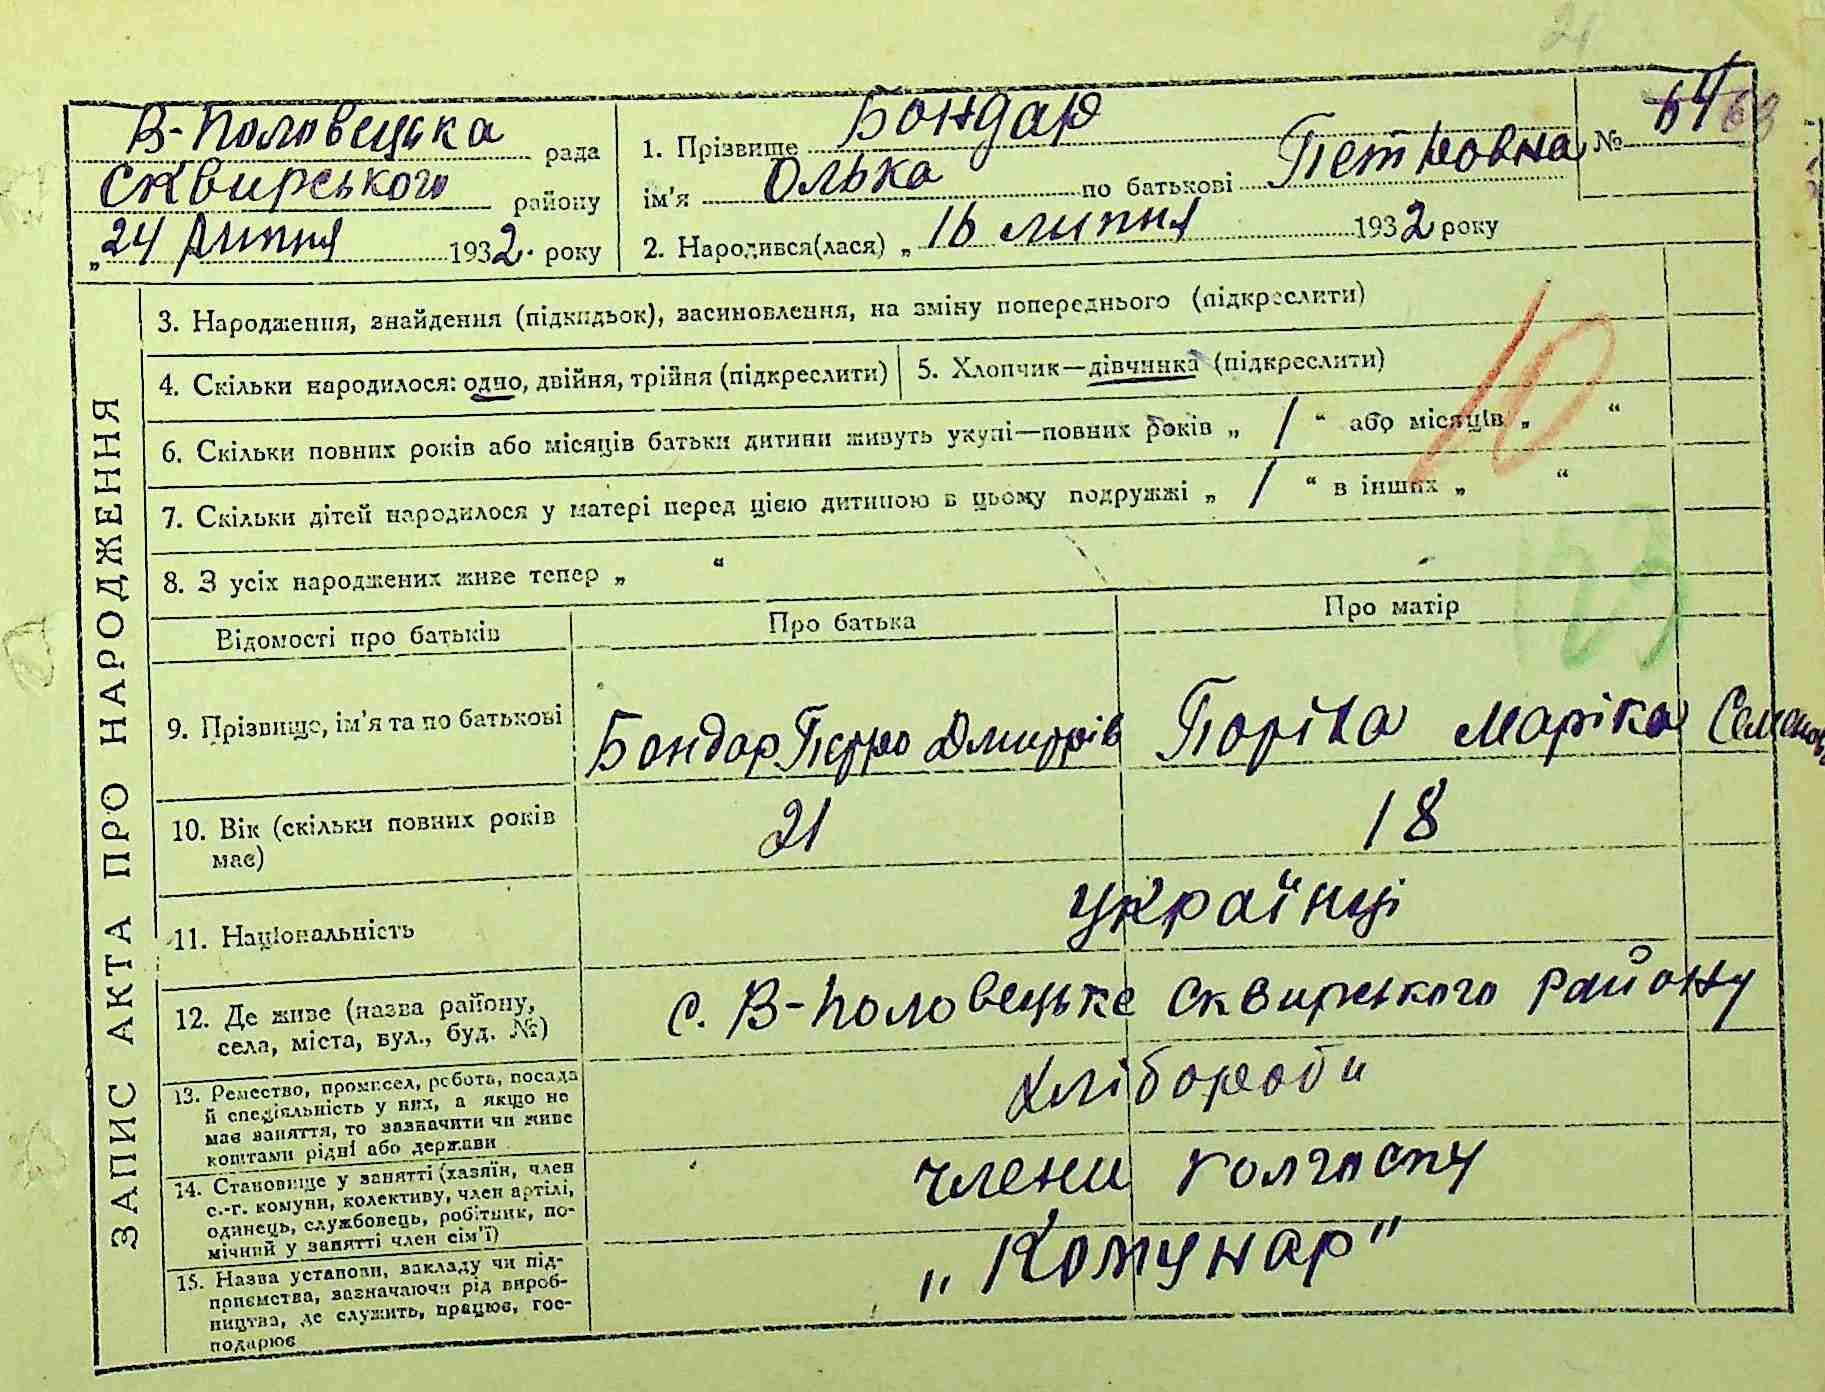 В-Половецька рада
Сквирського району
„24 липня 1932. року
1. Прізвище Бондар
ім'я Олька по батькові Петровна
№ 64 63
2. Народився(лася) „16 липня 1932 року
ЗАПИС АКТА ПРО НАРОДЖЕННЯ
3. Народження, знайдення (підкидьок), засиновлення, на зміну попереднього (підкреслити)
4. Скільки народилося: одно, двійня, трійня (підкреслити)
5. Хлопчик—дівчинка (підкреслити)
6. Скільки повних років або місяців батьки дитини живуть укупі—повних років „ 1 “ або місяців „ “
7. Скільки дітей народилося у матері перед цією дитиною в цьому подружжі „ 1 “ в інших „ “
8. З усіх народжених живе тепер „ “
10
Відомості про батьків
Про батька
Про матір
9. Прізвище, ім'я та по батькові
Бондар Петро Дмитрів
Маріка
10. Вік (скільки повних років
має)
21
18
11. Національність
Українці
12. Де живе (назва району,
села, міста, вул., буд. №)
с. В-Половецьке Сквирського району
13. Ремество, промисел, робота, посада
й спеціяльність у них, а якщо не
має заняття, то зазначити чи живе
коштами рідні або держави
Хлібороби
14. Становище у занятті (хазяїн, член
с.-г. комуни, колективу, член артілі,
одинець, службовець, робітник, по-
мічний у занятті член сім'ї)
члени колгоспу
15. Назва установи, закладу чи під-
приємства, зазначаючи рід вироб-
ництва, де служить, працює, гос-
подарює
„Комунар"